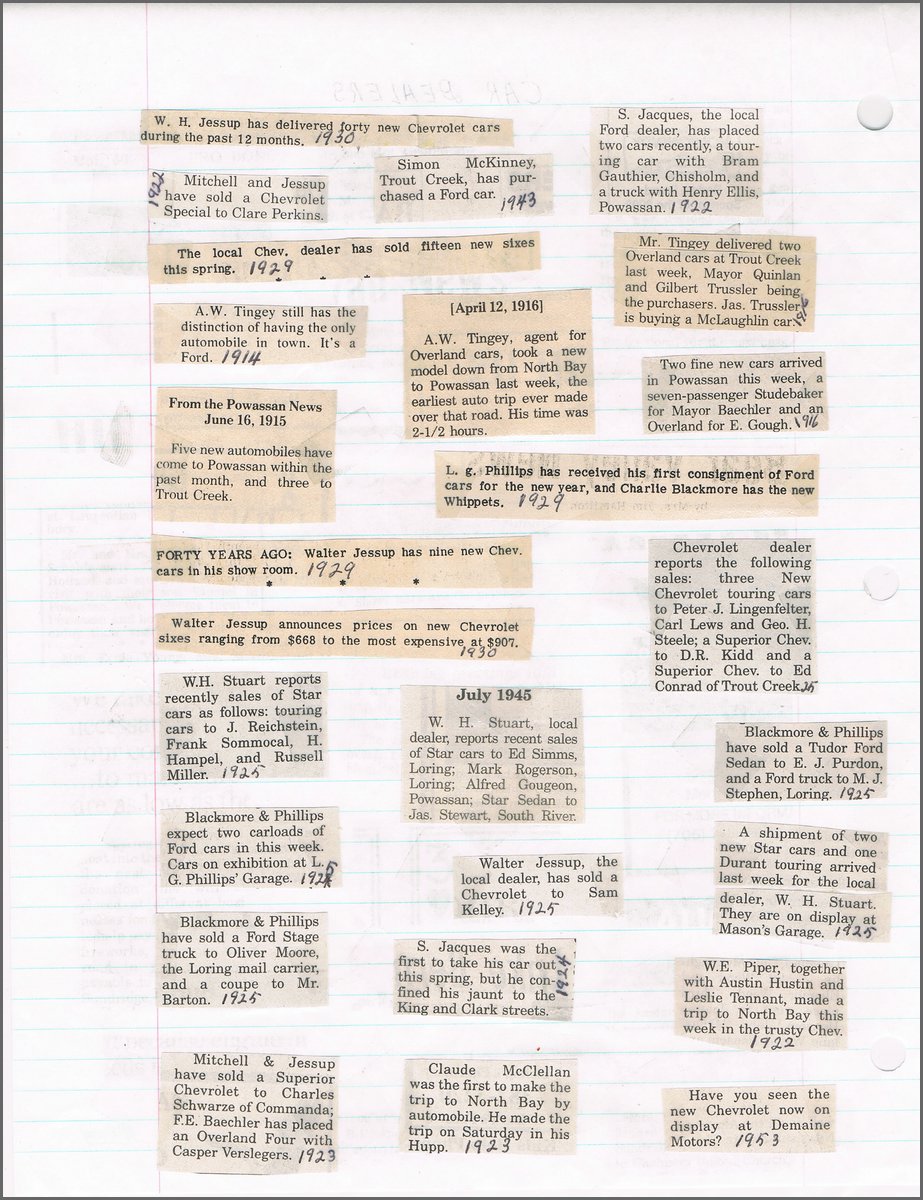 CAR DEALERS
W. H. Jessup has delivered forty new Chevrolet cars
during the past 12 months. 1930
1922
Mitchell and Jessup
have sold a Chevrolet
Special to Clare Perkins.
Simon McKinney,
Trout Creek, has pur-
chased a Ford car. 1943
S. Jacques, the local
Ford dealer, has placed
two cars recently, a tour-
ing car with Bram
Gauthier, Chisholm, and
a truck with Henry Ellis,
Powassan. 1922
The local Chev. dealer has sold fifteen new sixes
this spring. 1929
* * *
Mr. Tingey delivered two
Overland cars at Trout Creek
last week, Mayor Quinlan
and Gilbert Trussler being
the purchasers. Jas. Trussler
is buying a McLaughlin car. 1916
A.W. Tingey still has the
distinction of having the only
automobile in town. It's a
Ford. 1914
[April 12, 1916]
A.W. Tingey, agent for
Overland cars, took a new
model down from North Bay
to Powassan last week, the
earliest auto trip ever made
over that road. His time was
2-1/2 hours.
Two fine new cars arrived
in Powassan this week, a
seven-passenger Studebaker
for Mayor Baechler and an
Overland for E. Gough. 1916
From the Powassan News
June 16, 1915
Five new automobiles have
come to Powassan within the
past month, and three to
Trout Creek.
L. g. Phillips has received his first consignment of Ford
cars for the new year, and Charlie Blackmore has the new
Whippets. 1929
FORTY YEARS AGO: Walter Jessup has nine new Chev.
cars in his show room. 1929
* * *
Chevrolet dealer
reports the following
sales: three New
Chevrolet touring cars
to Peter J. Lingenfelter,
Carl Lews and Geo. H.
Steele; a Superior Chev.
to D.R. Kidd and a
Superior Chev. to Ed
Conrad of Trout Creek. 25
Walter Jessup announces prices on new Chevrolet
sixes ranging from $668 to the most expensive at $907.
1930
W.H. Stuart reports
recently sales of Star
cars as follows: touring
cars to J. Reichstein,
Frank Sommocal, H.
Hampel, and Russell
Miller. 1925
July 1945
W. H. Stuart, local
dealer, reports recent sales
of Star cars to Ed Simms,
Loring; Mark Rogerson,
Loring; Alfred Gougeon,
Powassan; Star Sedan to
Jas. Stewart, South River.
Blackmore & Phillips
have sold a Tudor Ford
Sedan to E. J. Purdon,
and a Ford truck to M. J.
Stephen, Loring. 1925
Blackmore & Phillips
expect two carloads of
Ford cars in this week.
Cars on exhibition at L.
G. Phillips' Garage. 1925
Walter Jessup, the
local dealer, has sold a
Chevrolet to Sam
Kelley. 1925
A shipment of two
new Star cars and one
Durant touring arrived
last week for the local
dealer, W. H. Stuart.
They are on display at
Mason's Garage. 1925
Blackmore & Phillips
have sold a Ford Stage
truck to Oliver Moore,
the Loring mail carrier,
and a coupe to Mr.
Barton. 1925
S. Jacques was the
first to take his car out
this spring, but he con-
fined his jaunt to the
King and Clark streets.
1924
W.E. Piper, together
with Austin Hustin and
Leslie Tennant, made a
trip to North Bay this
week in the trusty Chev.
1922
Mitchell & Jessup
have sold a Superior
Chevrolet to Charles
Schwarze of Commanda;
F.E. Baechler has placed
an Overland Four with
Casper Verslegers. 1923
Claude McClellan
was the first to make the
trip to North Bay by
automobile. He made the
trip on Saturday in his
Hupp. 1923
Have you seen the
new Chevrolet now on
display at Demaine
Motors? 1953